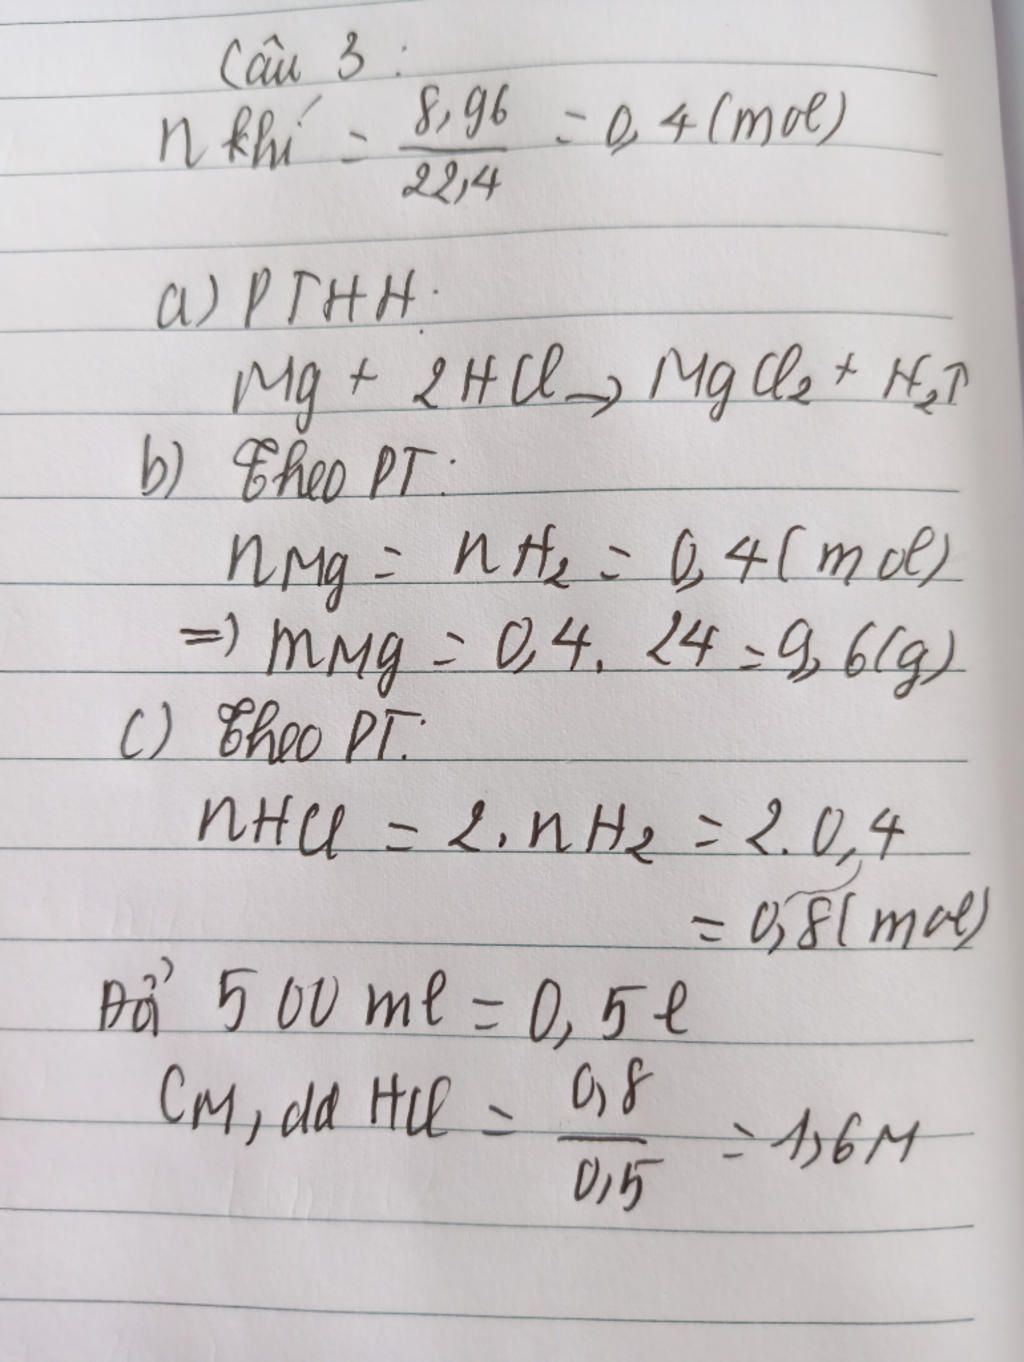 Câu 3 :
n khí = 8,96 / 22,4 = 0,4 (mol)
a) PTHH:
Mg + 2HCl → MgCl₂ + H₂↑
b) Theo PT:
nMg = nH₂ = 0,4 (mol)
=) mMg = 0,4 . 24 = 9,6 (g)
c) Theo PT:
nHCl = 2 . nH₂ = 2 . 0,4
= 0,8 (mol)
Đổi 500 ml = 0,5 l
CM, dd HCl = 0,8 / 0,5 = 1,6 M